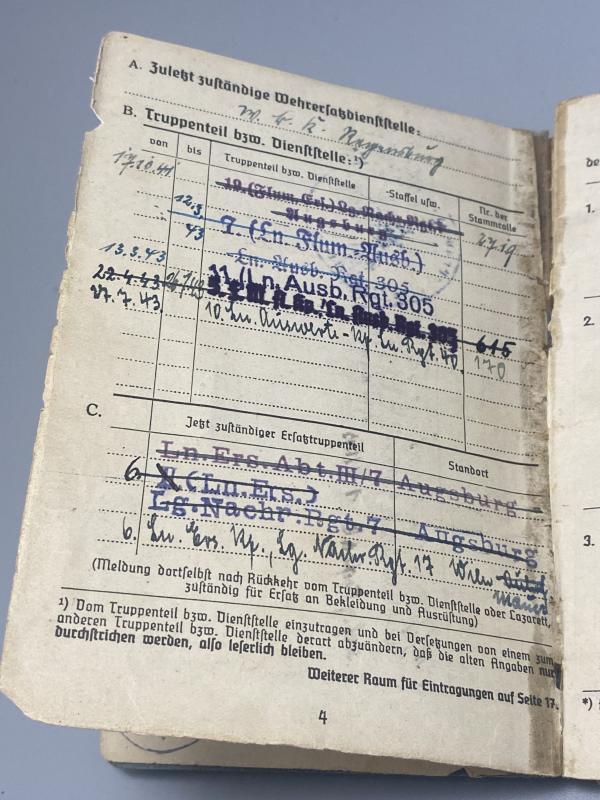 A. Zuletzt zuständige Wehrersatzdienststelle:
W. B. K. Regensburg
B. Truppenteil bzw. Dienststelle:¹)
von bis Truppenteil bzw. Dienststelle Staffel usw. Nr. der Stammrolle
17.10.41
Augsburg 2719
12.3.43 7. (Ln. Flum. Ausb.)
Ln. Ausb. Rgt. 305
13.3.43 11. (Ln. Ausb. Rgt. 305
22.4.43 Ln. Ausb. Rgt. 305 615
27.7.43 10. Ln. Auswerte-Kp. Ln. Rgt. 40. 170
C. Jetzt zuständiger Ersatztruppenteil Standort
Ln. Ers. Abt. III/7 Augsburg
6. (Ln. Ers.)
Lg. Nachr. Rgt. 7 Augsburg
6. Ln. Ers. Kp., Lg. Nachr. Rgt. 17 Wien
(Meldung dortselbst nach Rückkehr vom Truppenteil bzw. Dienststelle oder Lazarett,
zuständig für Ersatz an Bekleidung und Ausrüstung)
¹) Vom Truppenteil bzw. Dienststelle einzutragen und bei Versetzungen von einem zum
anderen Truppenteil bzw. Dienststelle derart abzuändern, daß die alten Angaben nur
durchstrichen werden, also leserlich bleiben.
Weiterer Raum für Eintragungen auf Seite 17.
4
de
1.
2.
3.
*)